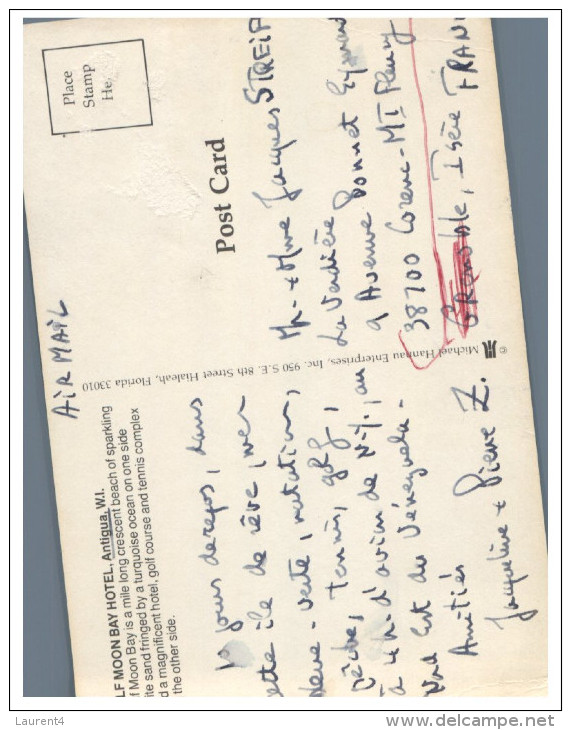 LF MOON BAY HOTEL, Antigua, W.I.
f Moon Bay is a mile long crescent beach of sparkling
ite sand fringed by a turquoise ocean on one side
d a magnificent hotel, golf course and tennis complex
the other side.
AIR MAIL
Place
Stamp
He
Post Card
jours de repos, dans
ette île de rêve, mer
verte, natation,
tennis, golf,
à 4 h. d'avion de N.Y., au
Nord Est du Vénézuela -
Amitiés
Jacqueline + Pierre Z.
© Michael Hannau Enterprises, Inc. 950 S.E. 8th Street Hialeah, Florida 33010
Mr + Mme Jacques STREIF
La Verdière
9 Avenue Bonnet Eymard
38700 Corenc-Mt Fleury
Grenoble, Isère FRAN
Laurent4
delcampe.net